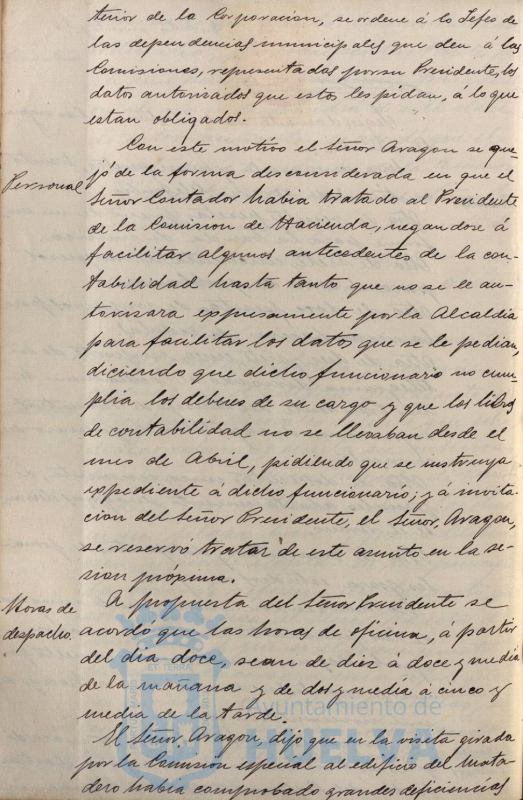 tenor de la Corporacion, se ordene á lo Jefes de
las dependencias municipales que den á las
Comisiones, representadas por su Presidente, los
datos autorizados que estos les pidan, á lo que
estan obligados.
Personal
Con este motivo el Señor Aragon se que-
jó de la forma desconsiderada en que el
Señor Contador habia tratado al Presidente
de la Comision de Hacienda, negandose á
facilitar algunos antecedentes de la con-
tabilidad hasta tanto que no se le au-
torisara expresamente por la Alcaldia
para facilitar los datos que se le pedian,
diciendo que dicho funcionario no cum-
plia los deberes de su cargo y que los libros
de contabilidad no se llevaban desde el
mes de Abril, pidiendo que se instruya
expediente á dicho funcionario; y á invita
cion del Señor Presidente, el Señor, Aragon,
se reservó tratar de este asunto en la se-
sion próxima.
Horas de
despacho.
A propuesta del Señor Presidente se
acordó que las horas de oficina, á partir
del dia doce, sean de diez á doce y media
de la mañana y de dos y media á cinco y
media de la tarde.
El Señor Aragon, dijo que en la visita girada
por la Comision especial al edificio del mata
dero habia comprobado grandes deficiencias
Ayuntamiento de
HUELVA